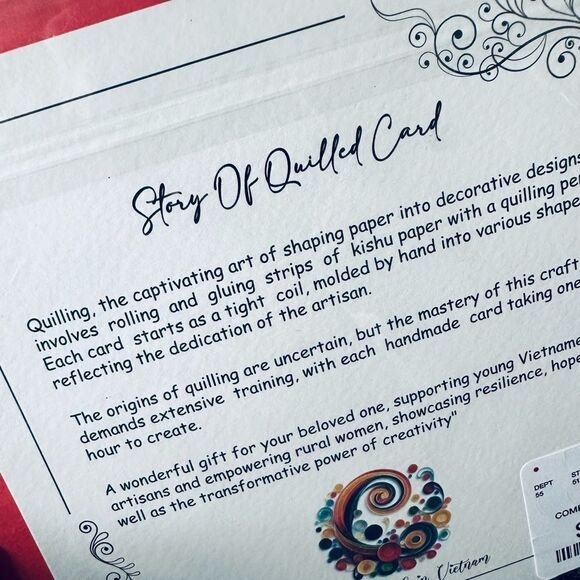 Story Of Quilled Card
Quilling, the captivating art of shaping paper into decorative designs
involves rolling and gluing strips of kishu paper with a quilling
Each card starts as a tight coil, molded by hand into various
reflecting the dedication of the artisan.
The origins of quilling are uncertain, but the mastery of this craft
demands extensive training, with each handmade card taking one
hour to create.
A wonderful gift for your beloved one, supporting young
artisans and empowering rural women, showcasing resilience,
well as the transformative power of creativity"
in Vietnam
DEPT
55